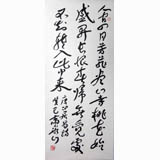 人间四月芳菲尽山寺桃花始
盛开长恨春归无觅处
不知转入此中来